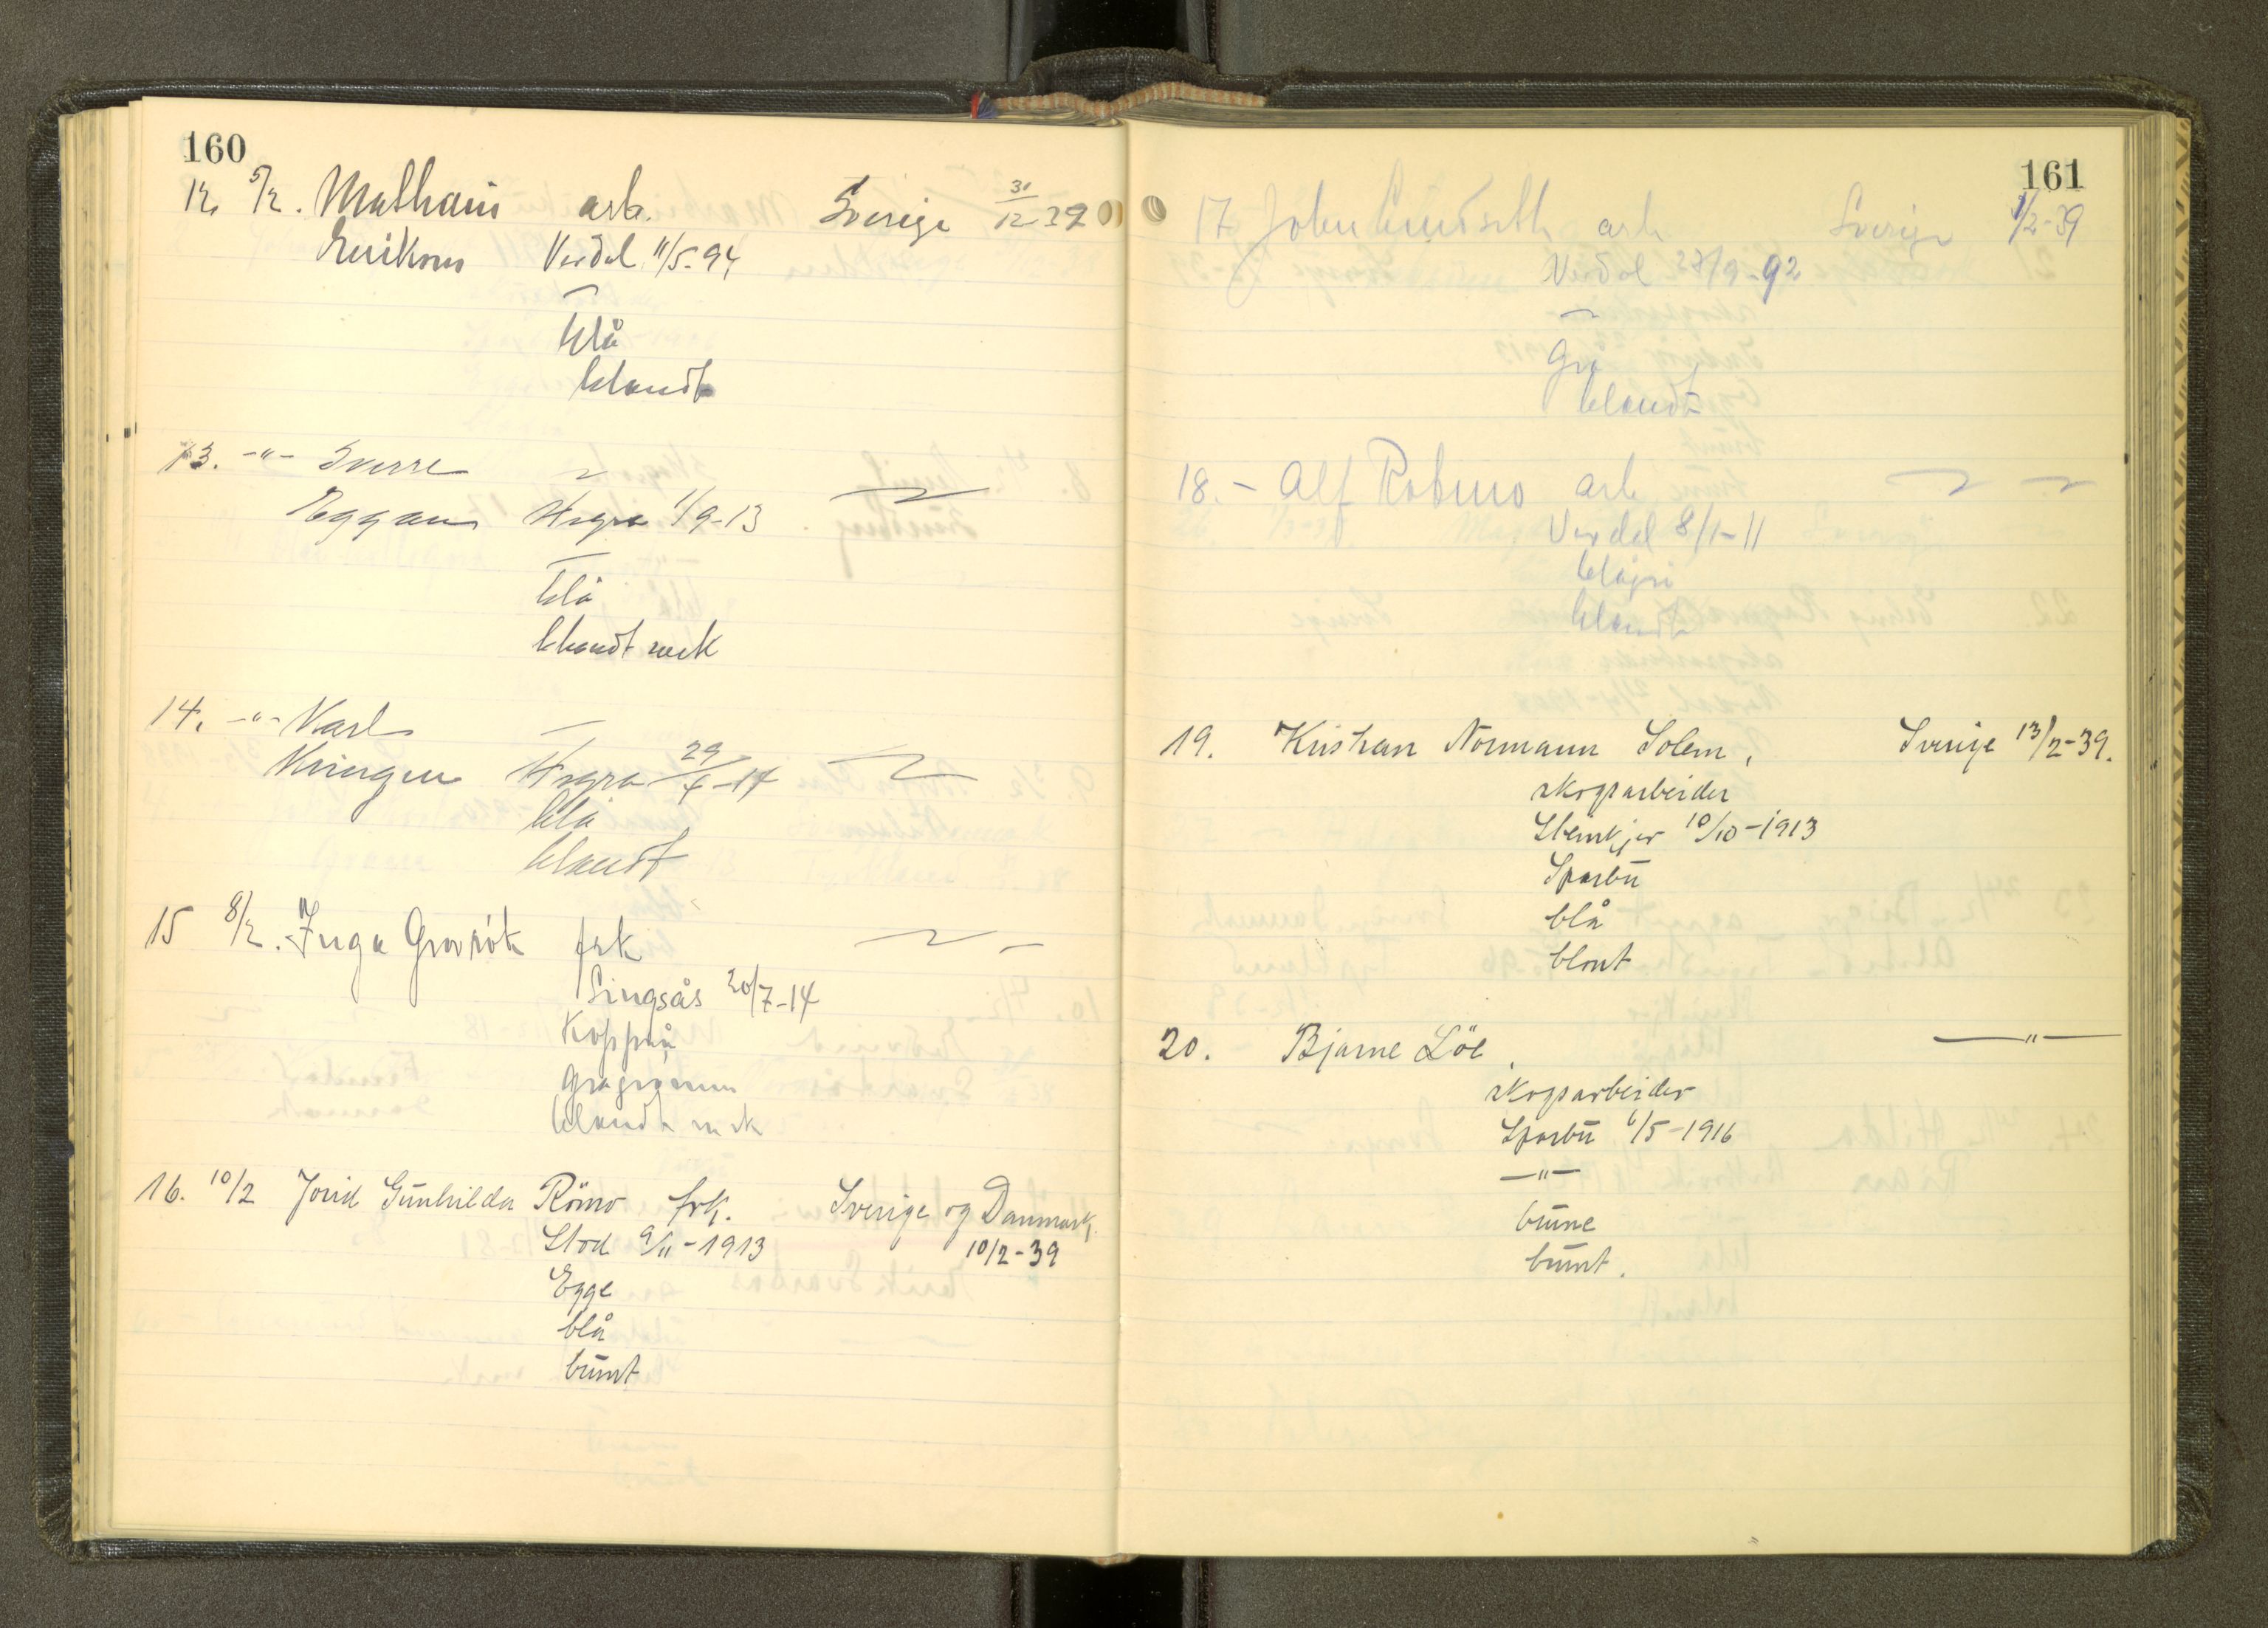 160
12. 5/2. Mathæus arb. Sverige 31/12-39
Eriksson Verdal 11/5-94
blå
blandt
13. -"- Sverre
Eggan Hegra 1/9-13
blå
blandt mrk
14. -"- Karl
Kringen Hegra 29/4-14
blå
blandt
15 8/2. Inga frk
Singsås 20/7-14
Koppen
grågrønn
blandt mrk
16. 10/2 Jorid Gunhilda Römo frk. Sverige og Danmark.
Stod 9/11-1913 10/2-39
Egge
blå
brunt
161
17 John arb Sverige 1/2-39
Verdal 27/9-92
Grå
blandt
18. - Alf arb
Verdal 8/1-11
blågrå
blandt
19. Kristian Normann Solem, Sverige 13/2-39.
skogsarbeider
Steinkjer 10/10-1913
Sparbu
blå
blont
20. Bjarne Löe. —"—
skogsarbeider
Sparbu 6/5-1916
—"—
brune
brunt.